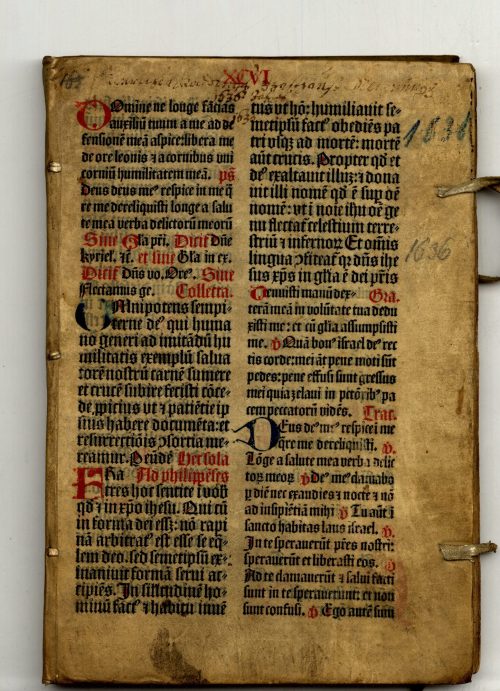 XCVI
1636
1636
1636
Domine ne longe facias
auxiliū tuum a me ad de
fensionē meā aspice: libera me
de ore leonis ⁊ a cornibus uni
corniū humilitatem meā. p̄s
Deus deus me⁹ respice in me q̄
re me dereliquisti longe a salu
te mea verba delictorū meorū
Sine Gl̓a pr̄i. Dicit̄ Dn̄e
kyriel. ꝛc̄. et sine Gl̓a in ex.
Dicit̄ Dn̄s vo. Ore. Sine
Flectamus ge. Collecta.
Omnipotens sempi
terne de⁹ qui huma
no generi ad imitādū hu
militatis exemplū salua
torē nostrū carnē sumere
et crucē subire fecisti cōce
de ꝓpicius vt ⁊ patiētie ip
sius habere documēta: et
resurrectiōis ꝯsortia me
reamur. Per eūdē
Ad philippēses
Fratres hoc sentite ī vob̄
qd̄ ⁊ in xp̄o ihesu. Qui cū
in forma dei ess̄: nō rapi
nā arbitrat⁹ est esse se eq̄
lem deo. sed semetipsū ex
inaniuit formā serui ac
cipiēs. In silitudinē ho
minū fact⁹ ⁊ habitu inuē
tus vt hō: humiliauit se
metipsū fact⁹ obediēs pa
tri vsq̄ ad mortē: mortē
aūt crucis. Propter qd̄ et
de⁹ exaltauit illū: ⁊ dona
uit illi nomē qd̄ ē suꝑ oē
nomē: vt ī noīe ihu oē ge
nu flectat̄ celestium terre
striū ⁊ infernoꝝ Et omīs
lingua ꝯfiteat̄ qꝛ dn̄s ihe
sus xp̄s in gl̓ia ē dei pr̄is
Tenuisti manū dex Gra.
terā meā in volūtate tua dedu
xisti me: et cū gl̓ia assumpsisti
me. ℣ Quā bon⁹ israel de⁹ rec
tis corde: mei āt pene moti sūt
pedes: pene effusi sunt gressus
mei quia zelaui in petōrib⁹ pa
cem peccatorū vidēs. Trac.
Deus de⁹ me⁹ respice ī me
q̄re me dereliquisti. ℣
Lōge a salute mea verba delic
toꝝ meoꝝ ℣ De⁹ me⁹ clamabo
ꝑ diē nec exaudies ⁊ nocte ⁊ nō
ad insipiētiā mihi ℣ Tu aūt ī
sancto habitas laus israel. ℣
In te sperauerūt pr̄es nostri:
sperauerūt et liberasti eos. ℣
Ad te clamauerūt ⁊ salui facti
sunt in te sperauerunt: et non
sunt confusi. ℣ Ego autē sum